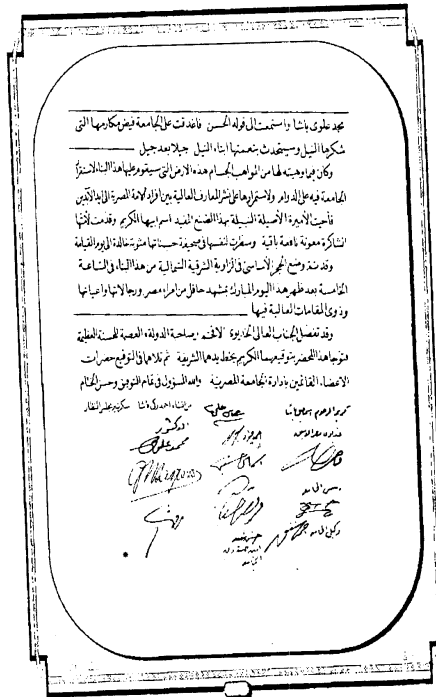 محمد علوى باشا واستمعت الى قوله الحسن فاغدقت على الجامعة فيض مكارمها التى
شكرها النيل وسيتحدث بنعمتها ابناء النيل جيلا بعد جيل
وكان فيما وهبته لها من المواهب الجسام هذه الارض التى سيقوم عليها هذا البناء لاستقرار
الجامعة فيه على الدوام ولاستمرارها على نشر المعارف العالية بين افراد الامة المصرية الى ابد الآبدين
فأحيت الأميرة الأصيلة النبيلة بهذا الصنع المفيد اسم ابيها الكريم وقدمت لأمتها
الشاكرة معونة نافعة باقية وسطرت لنفسها فى صحيفة حسناتها مثوبة خالدة الى يوم القيامة
وقد تم وضع الحجر الأساسى فى الزاوية الشرقية الشمالية من هذا البناء فى الساعة
الخامسة بعد ظهر هذا اليوم المبارك بمشهد حافل من امراء مصر ورجالاتها واعيانها
وذوى المقامات العالية فيها
وقد تفضل الجناب العالى الخديوى الافخم وصاحبة الدولة والعصمة المحسنة العظيمة
فتوجا هذا المحضر بتوقيعهما الكريم بخط يدهما الشريفة ثم تلاهما فى التوقيع حضرات
الاعضاء القائمين بادارة الجامعة المصرية والله المسؤول فى تمام التوفيق وحسن الختام
الدكتور
محمد علوى
وكيل الجامعة